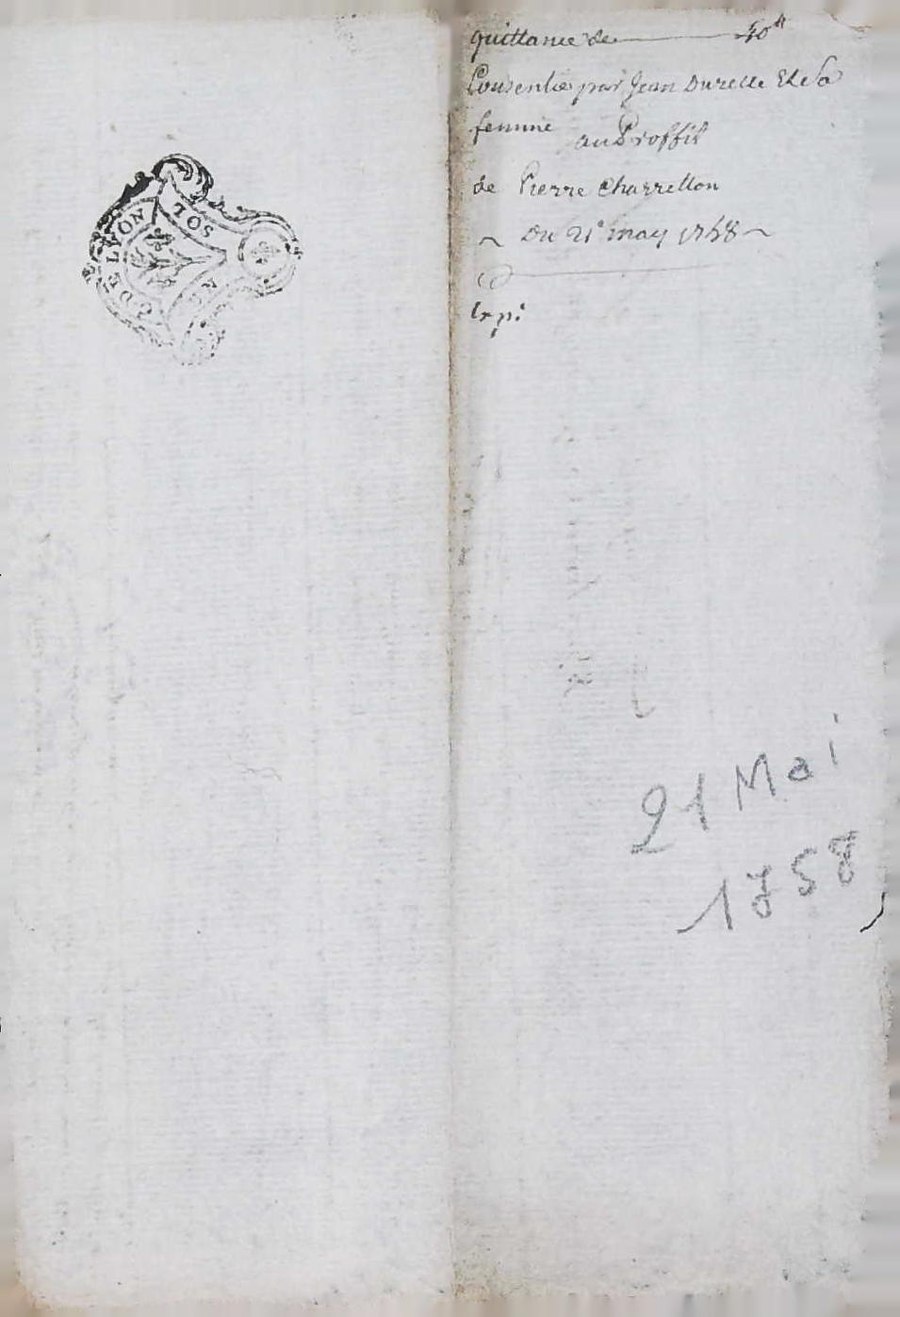 G DE LYON
SOL
quittance de 50 ₶
Consentie par Jean Durelle Et Sa
femme au Proffit
de Pierre Charretton
Du 21e may 1758
Expé
21 Mai
1758